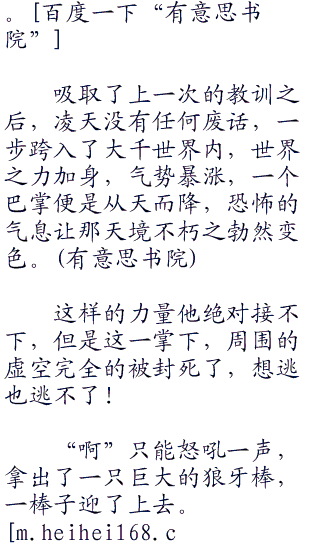 。[百度一下“有意思书
院”]
吸取了上一次的教训之
后，凌天没有任何废话，一
步跨入了大千世界内，世界
之力加身，气势暴涨，一个
巴掌便是从天而降，恐怖的
气息让那天境不朽之勃然变
色。(有意思书院)
这样的力量他绝对接不
下，但是这一掌下，周围的
虚空完全的被封死了，想逃
也逃不了！
“啊”只能怒吼一声，
拿出了一只巨大的狼牙棒，
一棒子迎了上去。
[m.heihei168.c